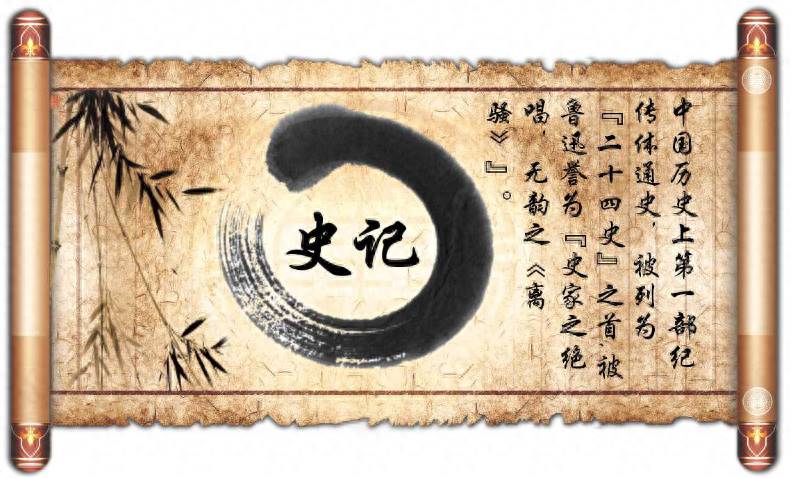 中国历史上第一部纪
传体通史，被列为
『二十四史』之首，被
鲁迅誉为『史家之绝
唱，无韵之《离
骚》』。
史记